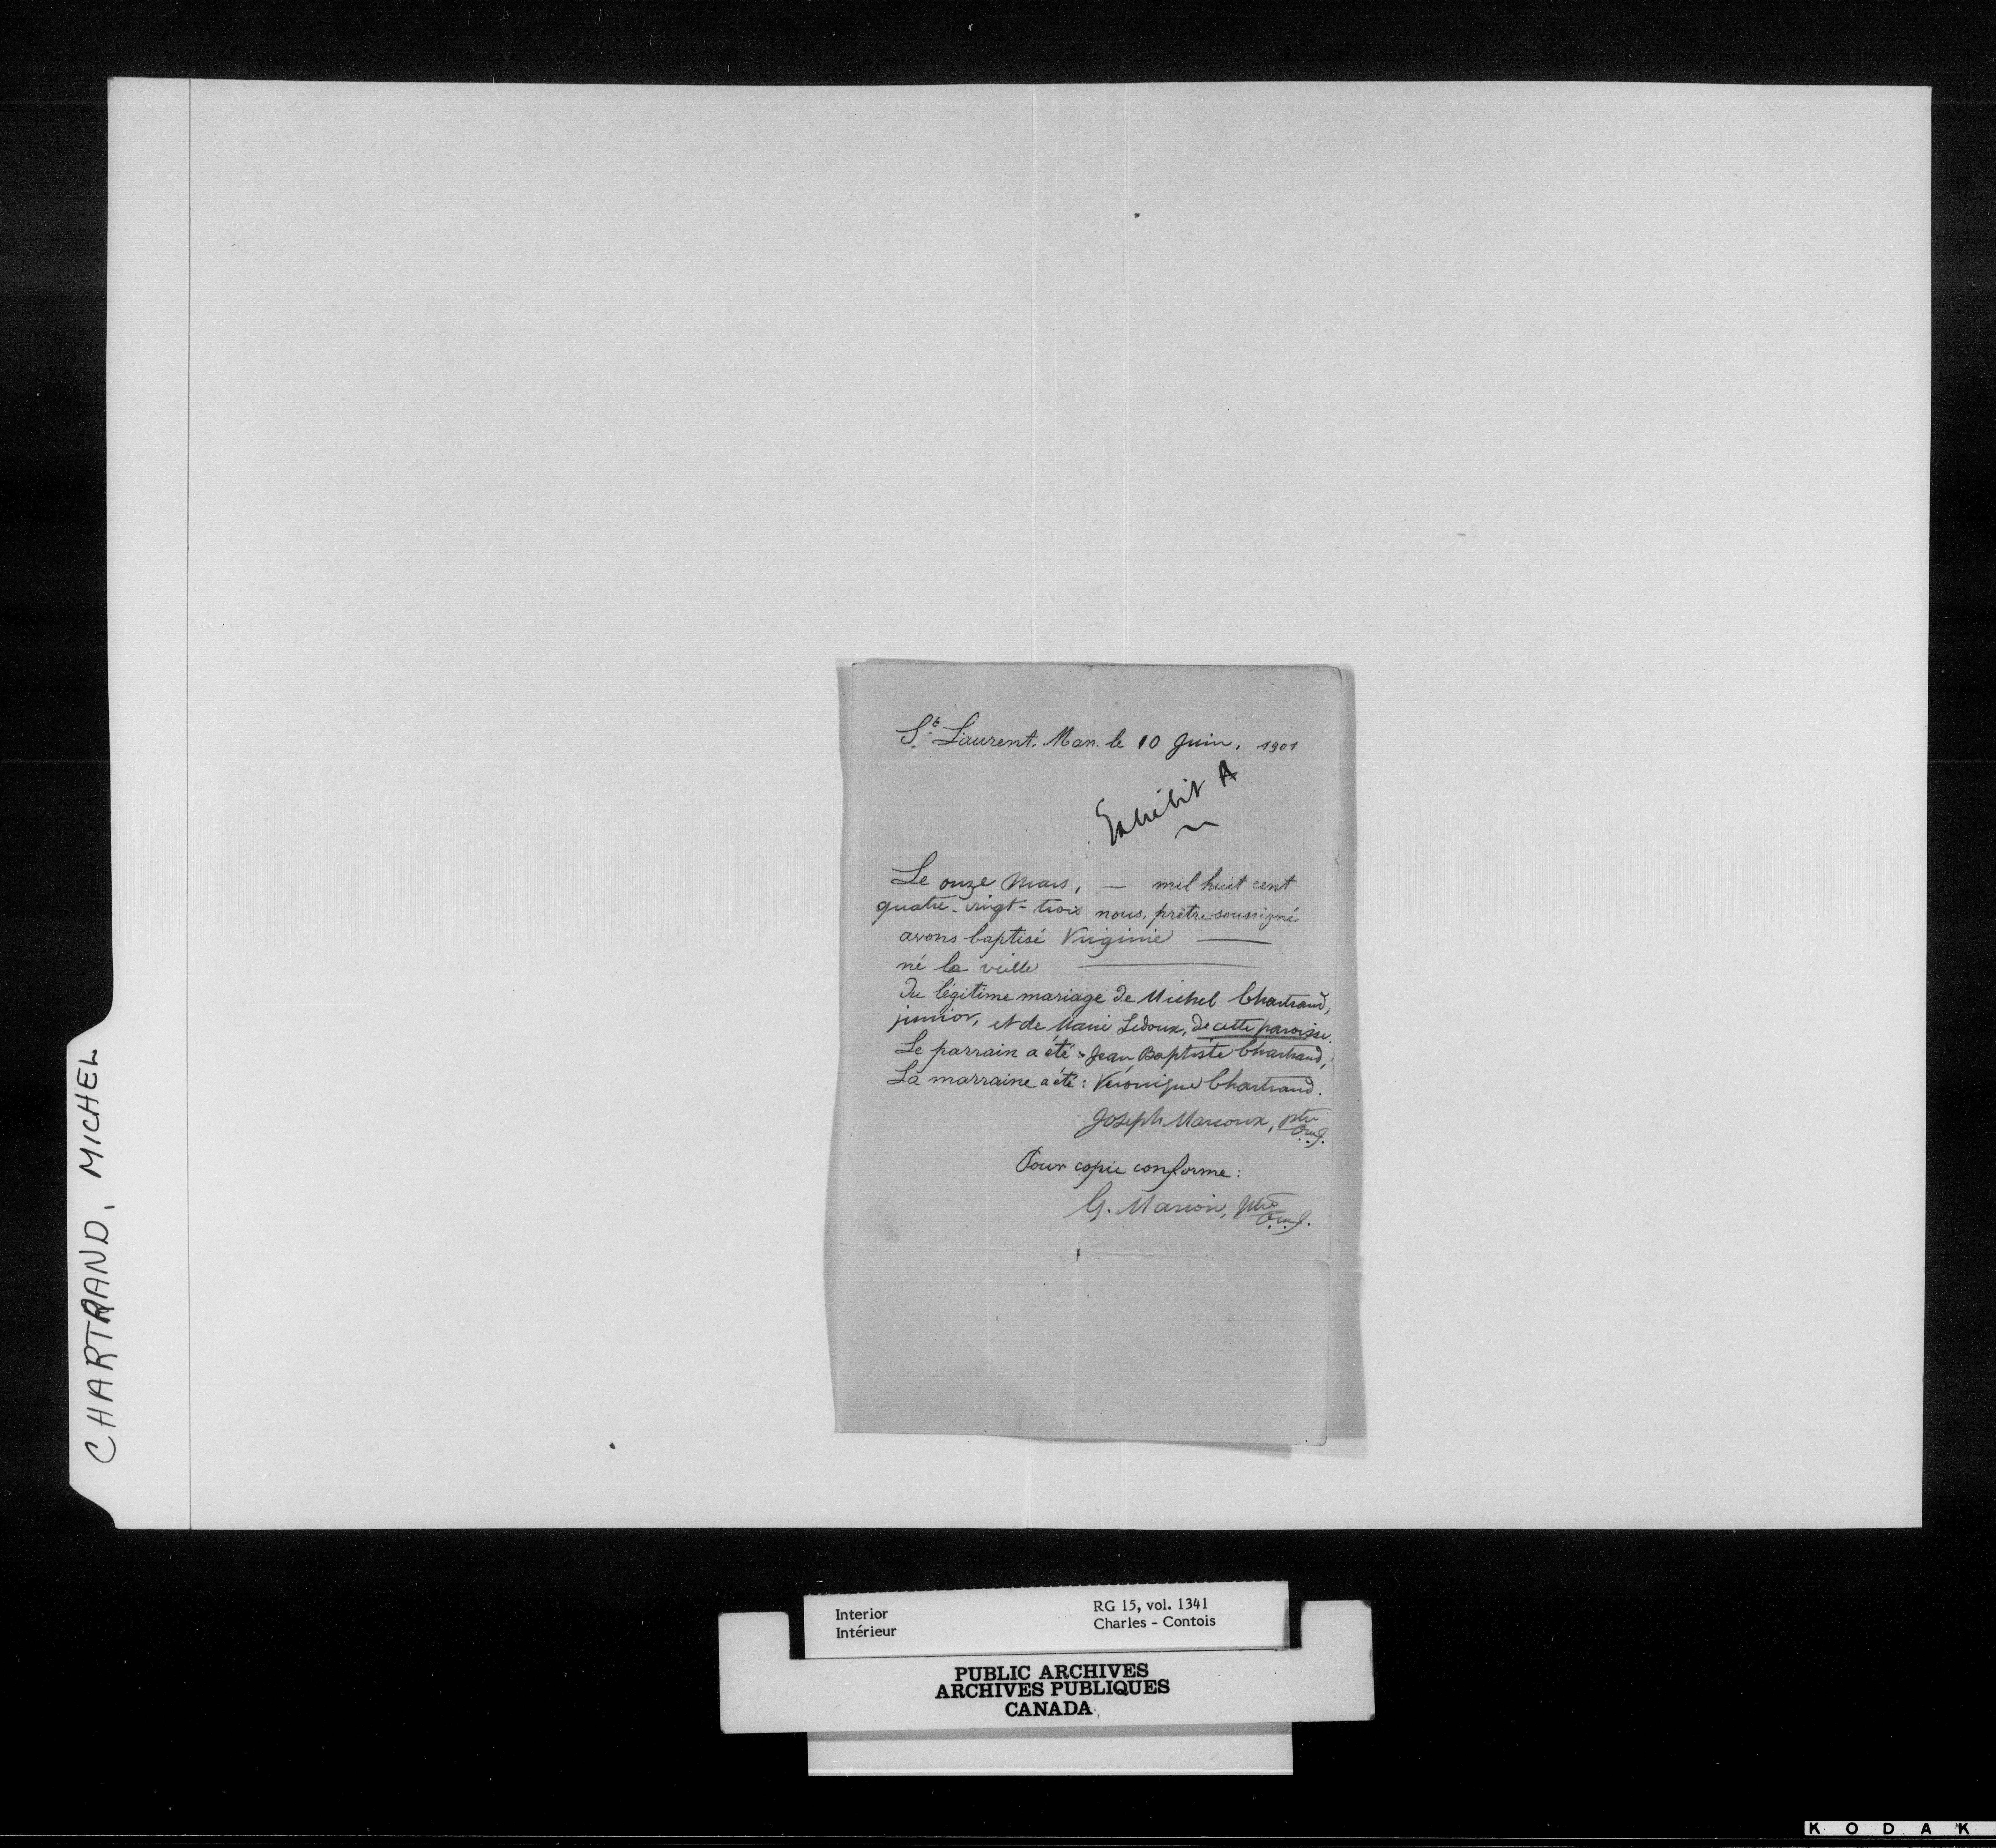 St. Laurent. Man. le 10 Juin, 1901
Exhibit A
Le onze Mars, — mil huit cent
quatre-vingt-trois nous, prêtre soussigné
avons baptisé Virginie —
né la veille —
du légitime mariage de Michel Chartrand,
junior, et de Marie Ledoux, de cette paroisse.
Le parrain a été: Jean Baptiste Chartrand,
La marraine a été: Véronique Chartrand.
Joseph Marcoux, ptre
O.m.J.
Pour copie conforme:
G. Marion, ptre
O.m.J.
CHARTRAND, MICHEL
Interior
Intérieur
RG 15, vol. 1341
Charles - Contois
PUBLIC ARCHIVES
ARCHIVES PUBLIQUES
CANADA
KODAK